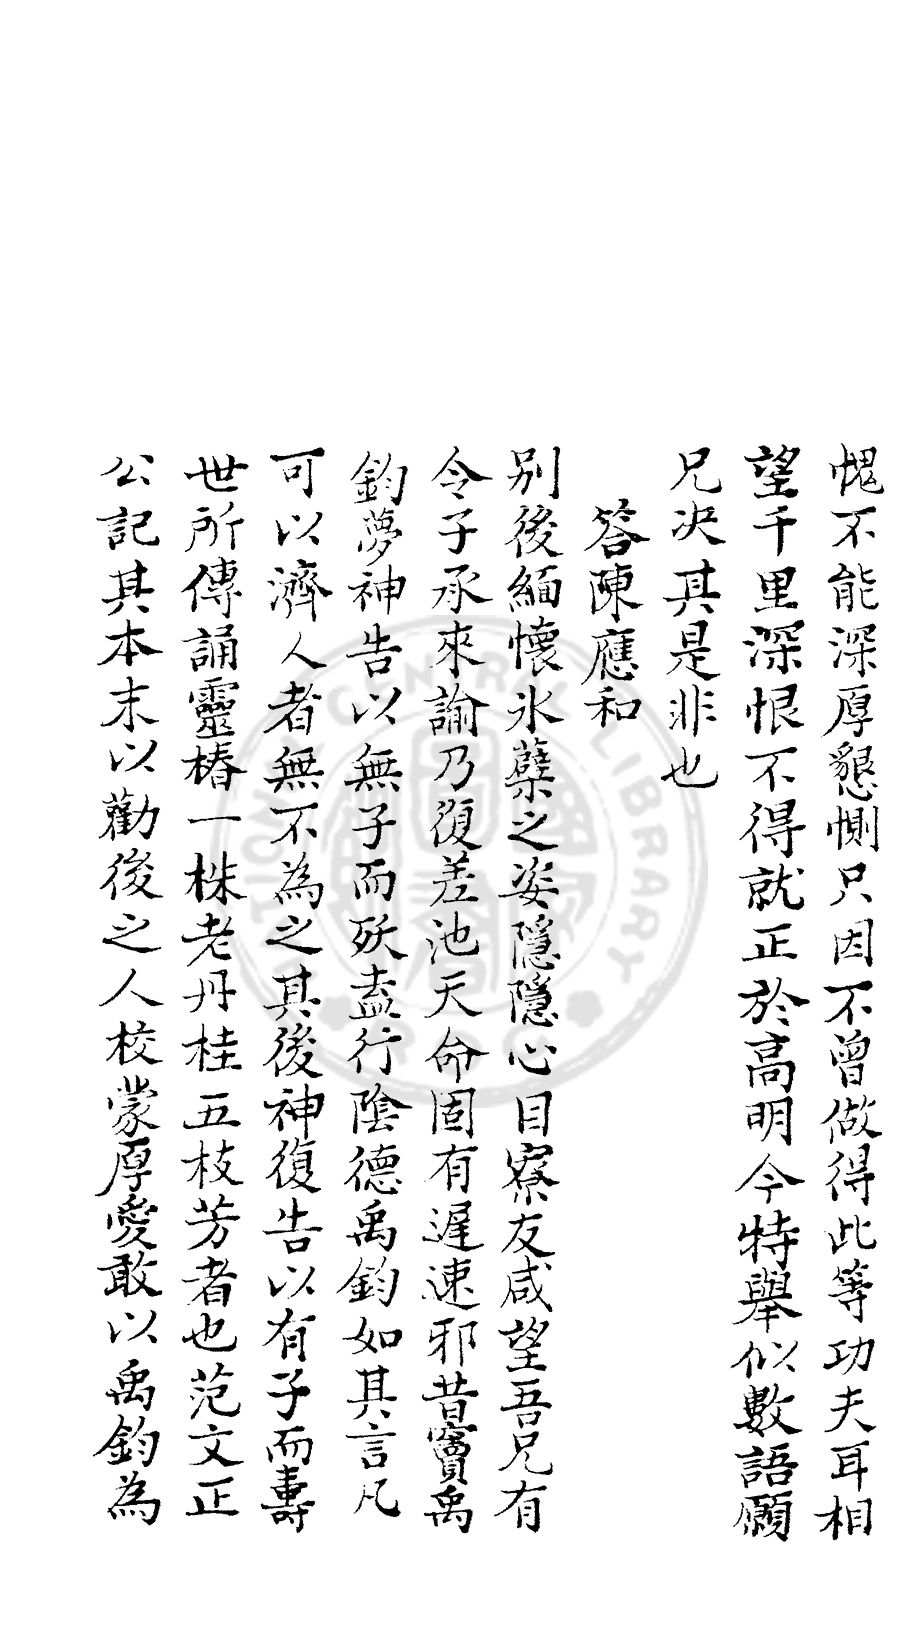 愧不能深厚懇惻只因不曾做得此等功夫耳相
望千里深恨不得就正於高明今特舉似數語願
兄决其是非也
答陳應和
別後緬懷氷蘗之姿隱隱心目寮友咸望吾兄有
令子承來諭乃復差池天命固有遲速邪昔竇禹
鈞夢神告以無子而殀盍行陰德禹鈞如其言凡
可以濟人者無不為之其後神復告以有子而壽
世所傳誦靈椿一株老丹桂五枝芳者也范文正
公記其本末以勸後之人校蒙厚愛敢以禹鈞為
CENTRAL LIBRARY